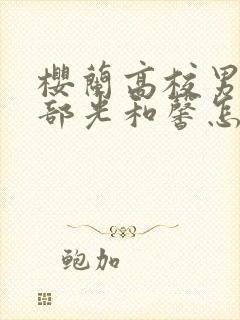 櫻蘭高校男
部光和馨怎
鲍加